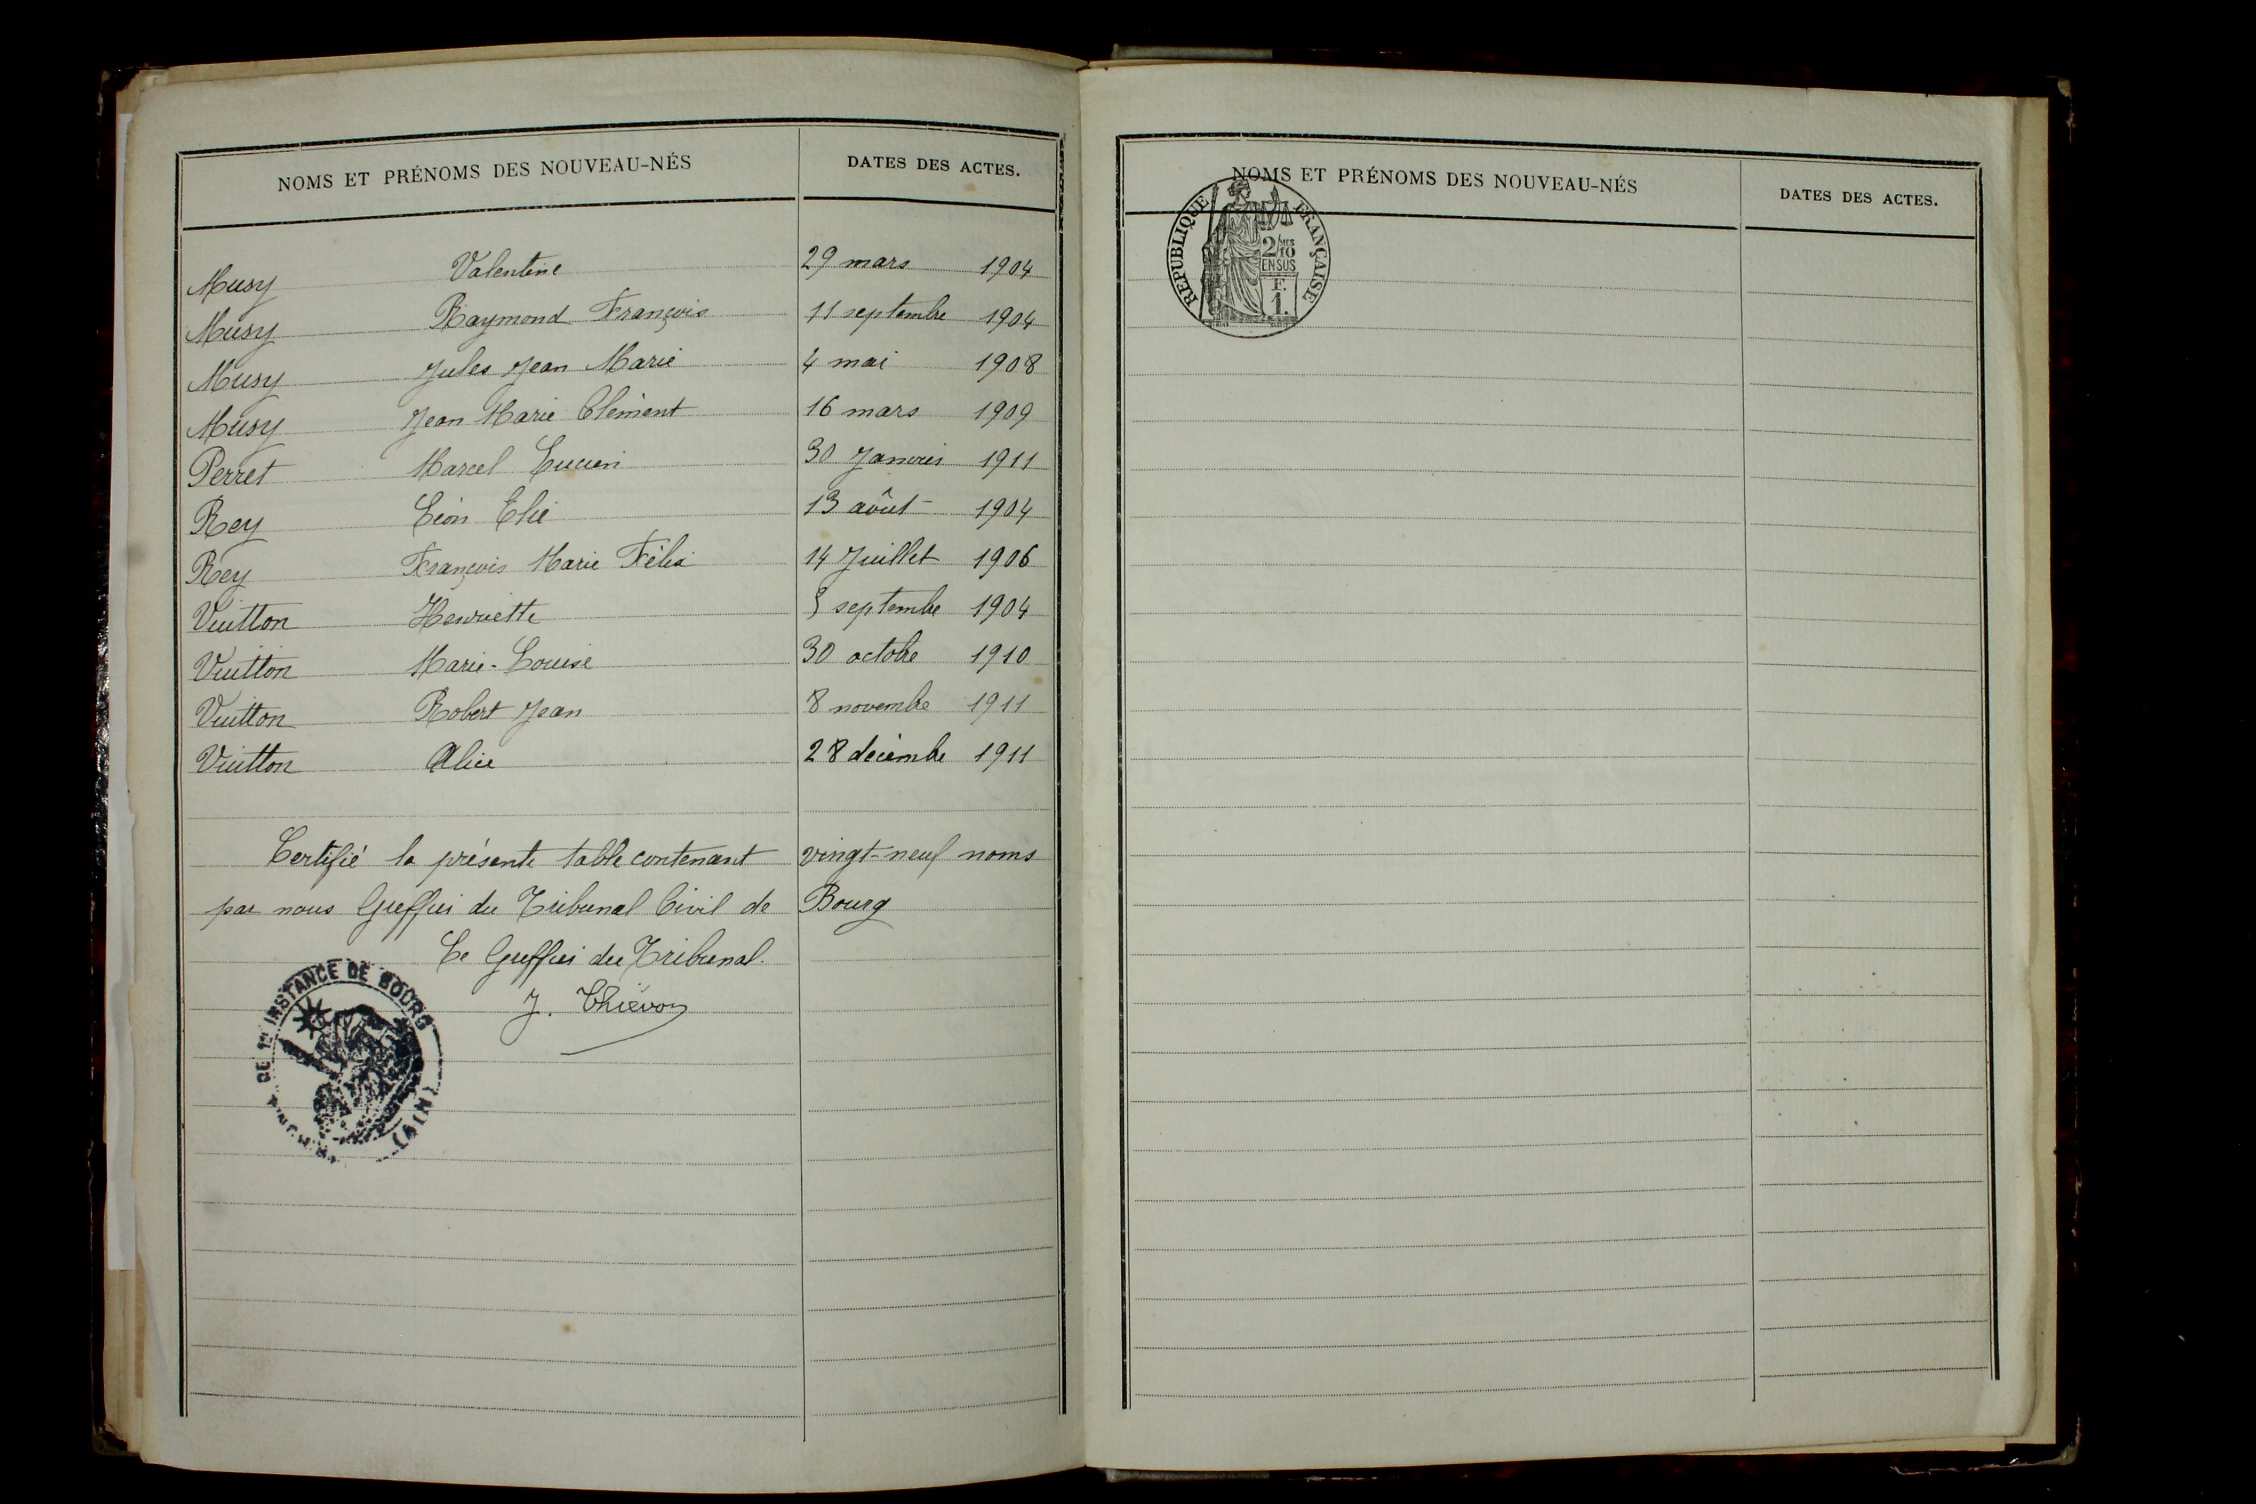 NOMS ET PRÉNOMS DES NOUVEAU-NÉS DATES DES ACTES.
Musy Valentine 29 mars 1904
Musy Raymond François 11 septembre 1904
Musy Jules Jean Marie 4 mai 1908
Musy Jean Marie Clément 16 mars 1909
Perret Marcel Lucien 30 Janvier 1911
Rey Léon Elie 13 août 1904
Rey François Marie Félix 14 Juillet 1906
Vuitton Henriette septembre 1904
Vuitton Marie-Louise 30 octobre 1910
Vuitton Robert Jean 8 novembre 1911
Vuitton Alice 28 décembre 1911
Certifié la présente table contenant vingt-neuf noms
par nous Greffier du Tribunal Civil de Bourg
Le Greffier du Tribunal.
J. Thiévon
DE 1re INSTANCE DE BOURG
(AIN)
NOMS ET PRÉNOMS DES NOUVEAU-NÉS DATES DES ACTES.
REPUBLIQUE FRANÇAISE
2/10 MES
EN SUS
F.
1.